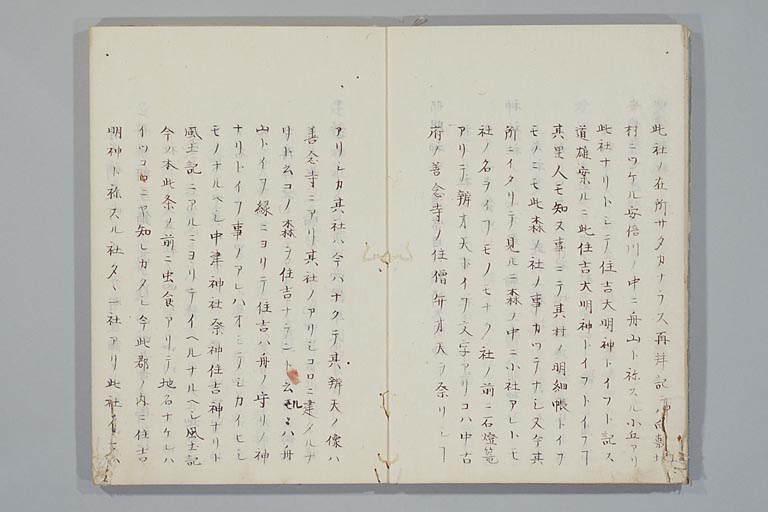 此社ノ在所サタカナラス再拜記ニハ
村ニツケル安倍川ノ中ニ舟山ト称スル小丘アリ
此社ナリトシテ住吉大明神トイフト記ス
道雄案ルニ此住吉大明神トイフ
其里人モ知ス事ニテ其村ノ明細帳トイフ
モノニモ此森ノ社ノ事カツテナシ又今其
所ニイタリテ見ルニ森ノ中ニ小社アレトモ
社ノ名ヲイフモノモナク社ノ前ニ石燈篭
アリテ辨才天トイフ文字アリコハ中古
府ノ善念寺ノ住僧弁才天ヲ祭リシ
アリシカ其社ハ今ハナクテ其辨天ノ像ハ
善念寺ニアリ其社ノアリシコロニ建タルナ
リト云コノ森ヲ住吉ナラント云モルハ舟
山トイフ縁ニヨリテ住吉ハ舟ノ守リノ神
ナリトイフ事ノアレハオシテシカイヒシ
モノナルヘシ中津神社祭神住吉神ナリト
風土記ニアルニヨリテイヘルナルヘシ風土記
今ノ本此条ノ前ニ虫食アリテ地名ナケレハ
イツコニヤ知レカタシ今此郡ノ内ニ住吉
明神ト称スル社タヽ一社アリ此社